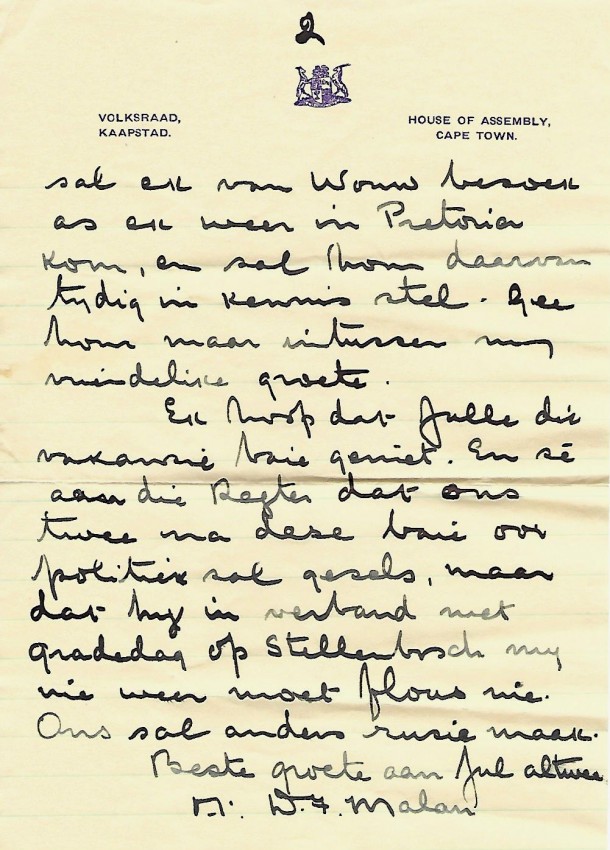 2
VOLKSRAAD,
KAAPSTAD.
HOUSE OF ASSEMBLY,
CAPE TOWN.
sal ek van Wouw besoek
as ek weer in Pretoria
kom, en sal hom daarvan
tydig in kennis stel. Gee
hom maar intussen my
vriendelike groete.
Ek hoop dat julle die
vakansie baie geniet. En sê
aan die Regter dat ons
twee na dese baie oor
politiek sal gesels, maar
dat hy in verband met
gradedag op Stellenbosch my
nie weer moet flous nie.
Ons sal anders rusie maak.
Beste groete aan jul altwee
D. F. Malan